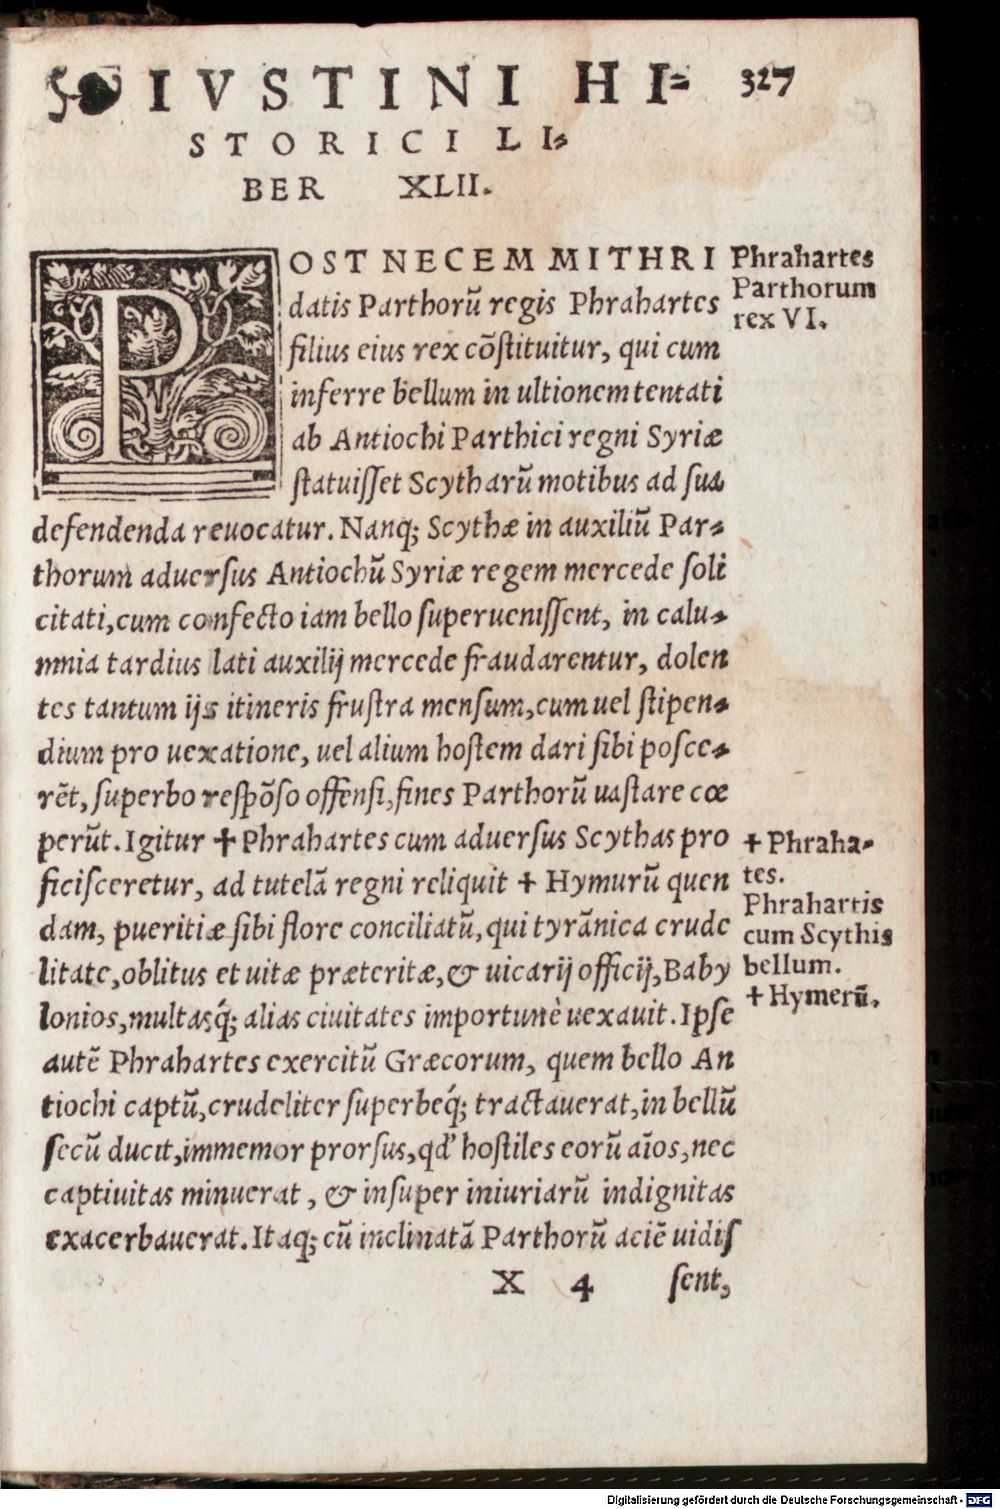 IVSTINI HI⸗ 327
STORICI LI⸗
BER XLII.
POST NECEM MITHRI
datis Parthorũ regis Phrahartes
filius eius rex cõſtituitur, qui cum
inferre bellum in ultionem tentati
ab Antiochi Parthici regni Syriæ
ſtatuiſſet Scytharũ motibus ad ſua
defendenda reuocatur. Nanq; Scythæ in auxiliũ Par⸗
thorum aduerſus Antiochũ Syriæ regem mercede ſoli
citati, cum confecto iam bello ſuperueniſſent, in calu⸗
mnia tardius lati auxilij mercede fraudarentur, dolen
tes tantum ijs itineris fruſtra menſum, cum uel ſtipen⸗
dium pro uexatione, uel alium hoſtem dari ſibi poſce⸗
rẽt, ſuperbo reſpõſo offenſi, fines Parthorũ uaſtare cœ
perũt. Igitur ✝ Phrahartes cum aduerſus Scythas pro
ficiſceretur, ad tutelã regni reliquit ✝ Hymurũ quen
dam, pueritiæ ſibi flore conciliatũ, qui tyrãnica crude
litate, oblitus et uitæ præteritæ, & uicarij officij, Baby
lonios, multasq́; alias ciuitates importunè uexauit. Ipſe
autẽ Phrahartes exercitũ Græcorum, quem bello An
tiochi captũ, crudeliter ſuperbeq́; tractauerat, in bellũ
ſecũ ducit, immemor prorſus, qđ hoſtiles eorũ aĩos, nec
captiuitas minuerat, & inſuper iniuriarũ indignitas
exacerbauerat. Itaq; cũ inclinatã Parthorũ aciẽ uidiſ
X 4 ſent,
Phrahartes
Parthorum
rex VI.
✝ Phraha⸗
tes.
Phrahartis
cum Scythis
bellum.
✝ Hymerũ.
Digitalisierung gefördert durch die Deutsche Forschungsgemeinschaft - DFG